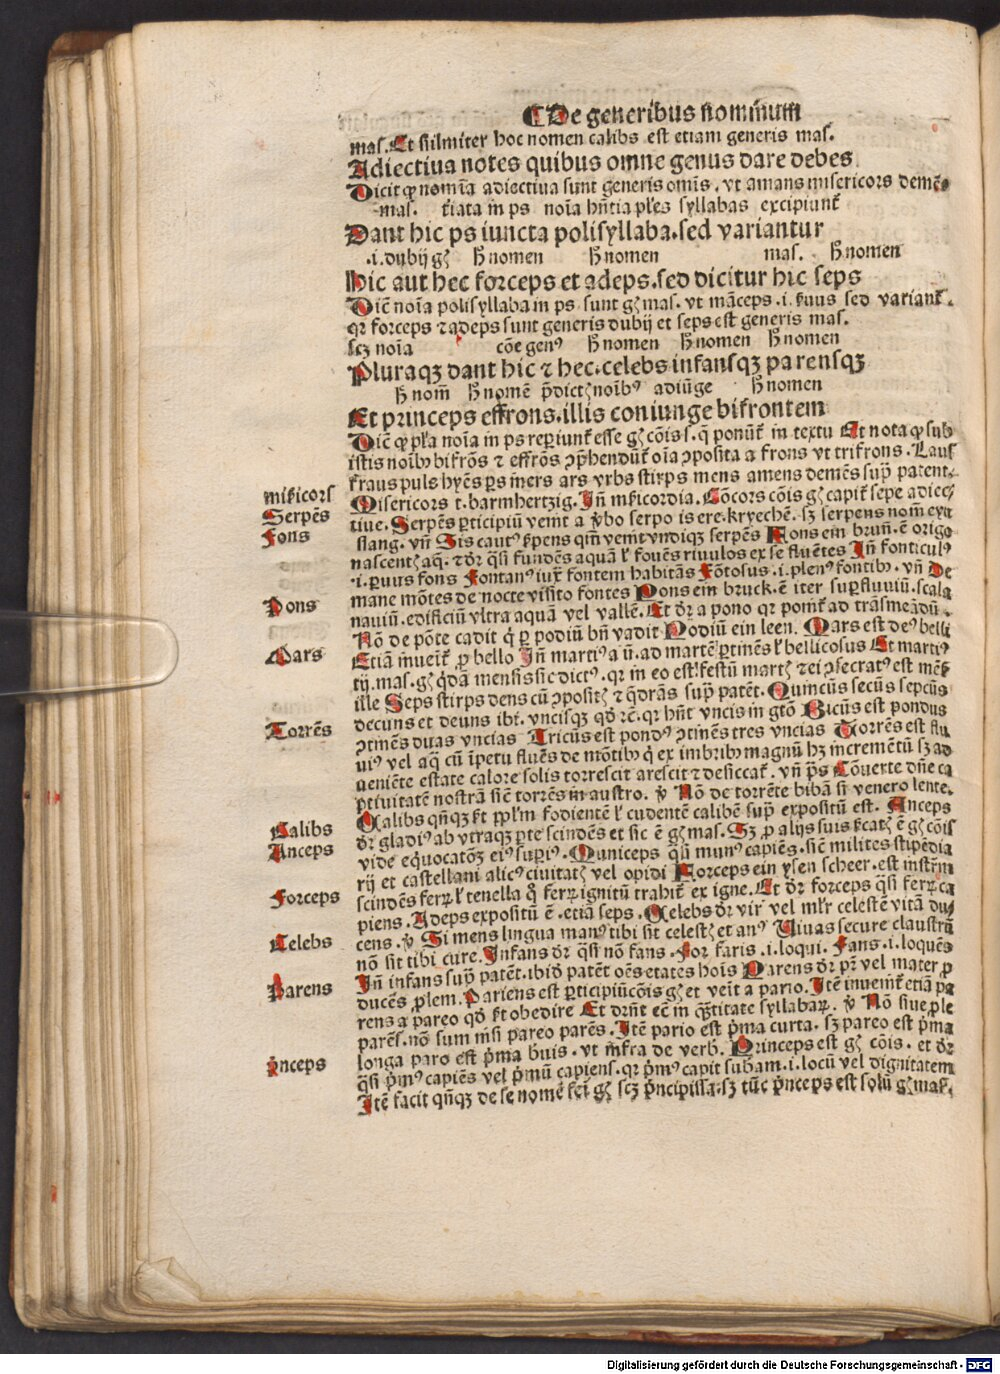 De generibus nominum
mas. Et similiter hoc nomen calibs est etiam generis mas.
Adiectiua notes quibus omne genus dare debes
Dicit ꝙ nomīa adiectiua sunt generis omīs. vt amans misericors demēs
mas. in ps noīa hn̄tia pl'es syllabas excipiunt̄
Dant hic ps iuncta polisyllaba. sed variantur
.i. dubij gꝫ hͦ nomen hͦ nomen mas. hͦ nomen
Hic aut hec forceps et adeps. sed dicitur hic seps
Dic̄ noīa polisyllaba in ps sunt gꝫ mas. vt māceps .i. sed variant̄.
qr forceps ⁊ adeps sunt generis dubij et seps est generis mas.
scꝫ noīa cōe genꝰ hͦ nomen hͦ nomen hͦ nomen
Pluraqꝫ dant hic ⁊ hec. celebs infansqꝫ parensqꝫ
hͦ nom̄ hͦ nomē p̄dictꝫ noībꝰ adiūge hͦ nomen
Et princeps effrons. illis coniunge bifrontem
Dic̄ ꝙ pl'a noīa in ps reꝑiunt̄ esse gꝫ cōis. q̄ ponūt̄ in textu Et nota ꝙ sub
istis noībꝰ bifrōs ⁊ effrōs ꝯp̄hendūt̄ oīa ꝯposita a frons vt trifrons. Laus
fraus puls hyēs ars vrbs stirps mens amens demēs sup̄ patent.
misericors
Misericors t. barmhertzig. Jn̄ Cōcors cōis gꝫ capit̄ sepe adiec
Serpēs
tiue. Serpēs ꝑticipiū venit a v̄bo serpo is ere. kryechē. sꝫ serpens nom̄
Fons
slang. vn̄ Sis cautꝰ vndiqꝫ serpēs Fons ein brun̄. ē origo
nascentꝫ aq̄. ⁊ dr̄ q̄si fundēs aquā l' fouēs riuulos ex se fluētes Jn̄ fonticulꝰ
.i. ꝑuus fons Fontanꝰ iux̄ fontem habitās Fōtosus .i. plenꝰ fontibꝰ. vn̄ De
mane mōtes de nocte visito fontes Pons ein bruck. ē iter suꝑ fluuiū. scala
Pons
nauiū. edificiū vltra aquā vel vallē. Et dr̄ a pono qr ponit̄ ad trāsmeādū.
Nō de pōte cadit q̄ ꝑ podiū bn̄ vadit Podiū ein leen. Mars est deꝰ belli
Mars
Etiā inueit̄ ꝓ bello Jn̄ martiꝰ a ū. ad martē ꝑtinēs l' bellicosus Et martiꝰ
tij. mas. gꝫ q̄dā mensis sic dictꝰ. qr in eo est festū martꝫ ⁊ ei ꝯsecratꝰ est mēs
ille Seps stirps dens cū ꝯpositꝫ ⁊ q̄drās sup̄ patēt. Quincūs secūs sepcūs
decuns et deuns ibi. vncisqꝫ qd̄ rē. qr hn̄t vncis in gtō Bicūs est pondus
Torrēs
ꝯtinēs duas vncias Tricūs est pondꝰ ꝯtinēs tres vncias Torrēs est flu
uiꝰ vel aq̄ cū īpetu fluēs de mōtibꝰ q̄ ex imbribꝰ magnū hꝫ incremētū sꝫ ad
ueniēte estate calore solis torrescit arescit ⁊ desiccat̄. vn̄ p̄s Cōuerte dn̄e ca
ptiuitatē nostrā sic̄ torrēs in austro. v̄ Nō de torrēte bibā si venero lente.
Calibs
Calibs qn̄qꝫ fodientē l' cudentē calibē sup̄ expositū est. Anceps
Anceps
dr̄ gladiꝰ ab vtraqꝫ ꝑte scindēs et sic ē gꝫ mas. Sꝫ ꝓ alijs suis ē gꝫ cōis
vide equocatōꝫ eiꝰ supiꝰ. Municeps q̄si munꝰ capiēs. sic̄ milites stipēdia
rij et castellani alicꝰ ciuitatꝫ vel opidi Forceps ein ysen scheer. est instr̄m
Forceps
scindēs l' tenella q̄ ignitū trahit̄ ex igne. Et dr̄ forceps q̄si ca
piens. Adeps expositū ē. etiā seps. Celebs dr̄ vir vel ml'r celestē vitā du
Celebs
cens. v̄ Si mens lingua manꝰ tibi sit celestꝫ et anꝰ Viuas secure claustrū
nō sit tibi cure. Jnfans dr̄ q̄si nō fans. For faris .i. loqui. Fans .i. loquēs
Jn̄ infans sup̄ patēt. ibiꝺ patēt oēs etates hoīs Parens dr̄ pr̄ vel mater ꝓ
Parens
ducēs ꝓlem. Pariens est ꝑticipiū cōis gꝫ et veīt a pario. Jtē inuenit̄ etiā pa
rens a pareo qd̄ obedire Et dr̄nt eē in q̄ntitate syllabaꝝ. v̄ Nō siue ꝓle
parēs. nō sum nisi pareo parēs. Jtē pario est p̄ma curta. sꝫ pareo est p̄ma
p̄nceps
longa paro est p̄ma b̄uis. vt infra de verb. Princeps est gꝫ cōis. et dr̄
q̄si p̄mꝰ capiēs vel p̄mū capiens. qr p̄mꝰ capit subam .i. locū vel dignitatem
Jtē facit qn̄qꝫ de se nomē fei gꝫ scꝫ p̄ncipissa. sꝫ tūc p̄nceps est solū gꝫ mas.
Digitalisierung gefördert durch die Deutsche Forschungsgemeinschaft - DFG